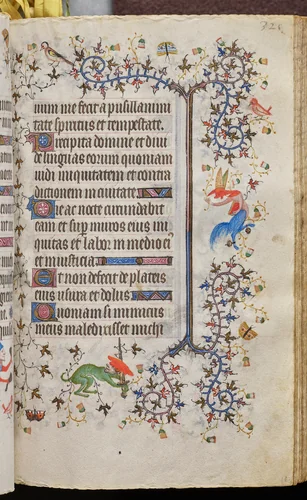 321
num me fecit a pusillanimi
tate spiritus et tempestate.
Precipita domine et divi
de linguas eorum quoniam
vidi iniquitatem et contra
dictionem in civitate
Die ac nocte circumdabit
eam et sup muros eius ini
quitas et labor in medio ei
et iniusticia
Et non defecit de plateis
eius usura et dolus
Quoniam si inimicus
meus maledixisset michi